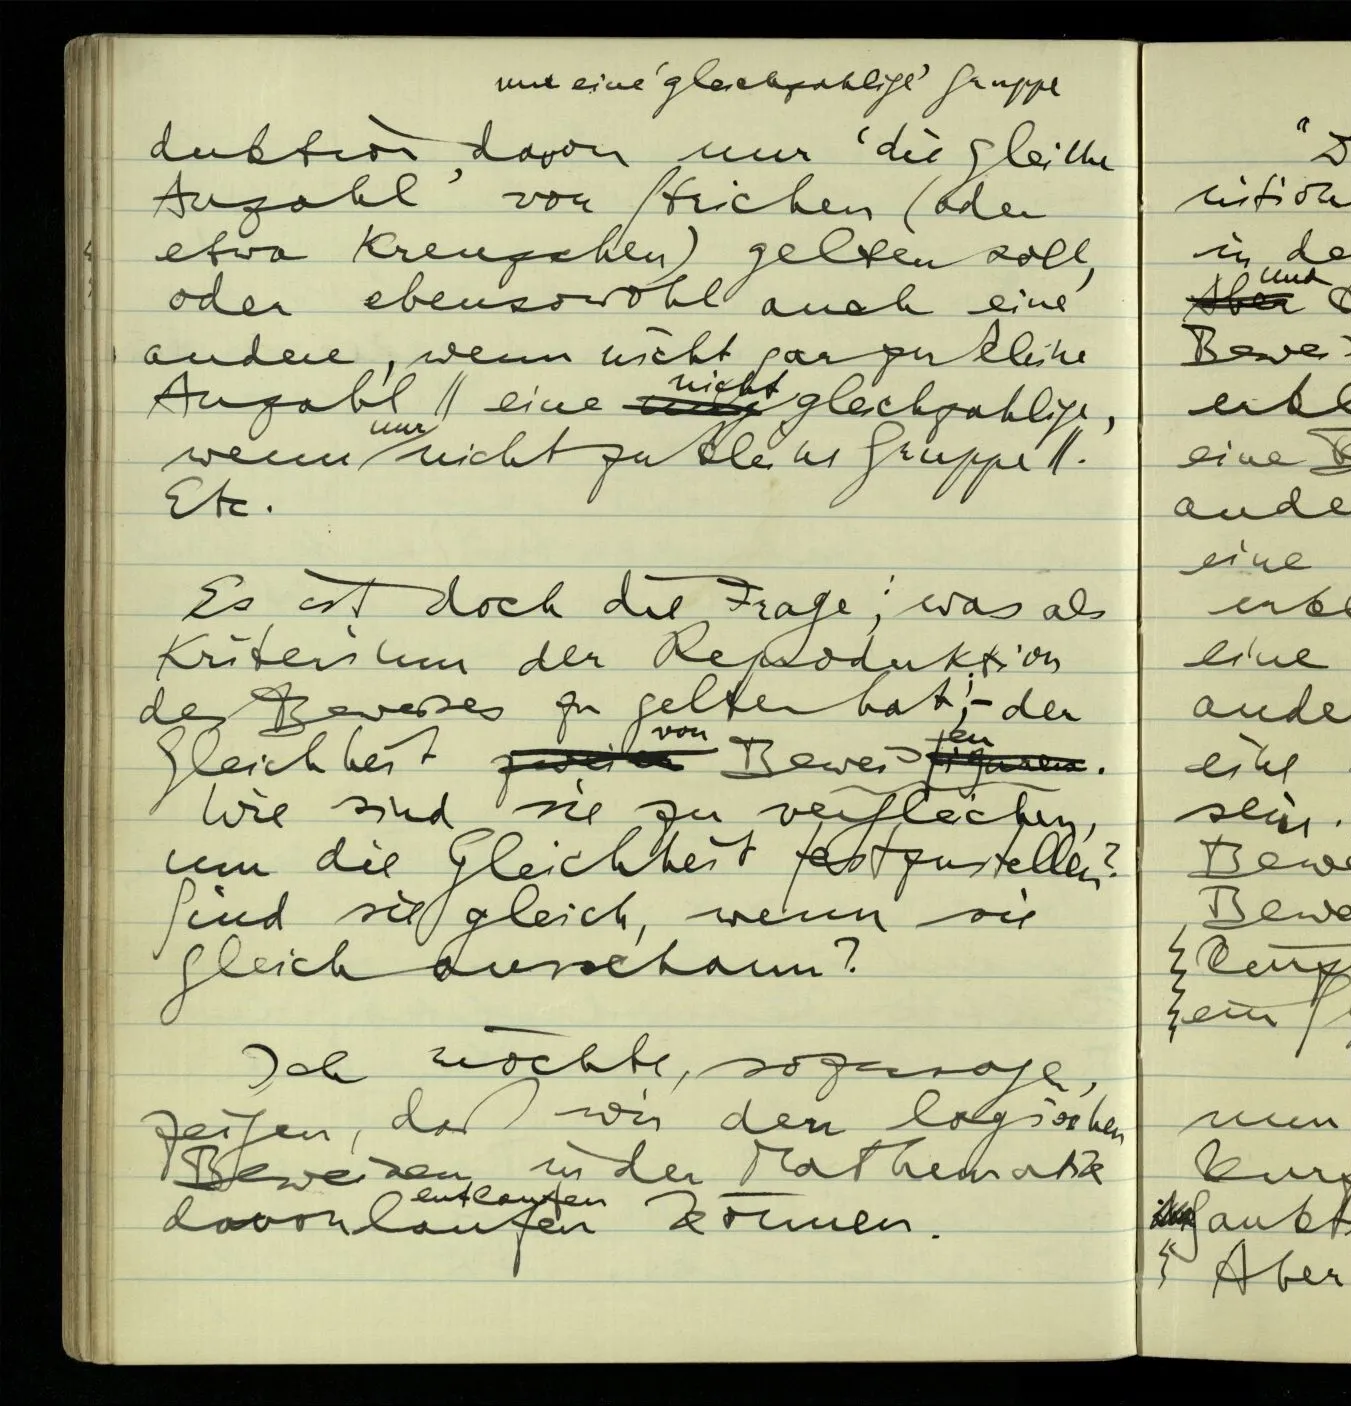 nur eine 'gleichzahlige' Gruppe
duktion davon nur 'die gleiche
Anzahl' von Strichen (oder
etwa Kreuzchen) gelten soll,
oder ebensowohl auch eine
andere, wenn nicht gar zu kleine
Anzahl // eine nicht gleichzahlige,
wenn nur nicht zu kleine Gruppe //.
Etc.
Es ist doch die Frage; was als
Kriterium der Reproduktion
des Beweises zu gelten hat; – der
Gleichheit zweier von Beweisfiguren en.
Wie sind sie zu vergleichen,
um die Gleichheit festzustellen?
Sind sie gleich, wenn sie
gleich ausschauen?
Ich möchte, sozusagen,
zeigen, daß wir den logischen
Beweisen in der Mathematik
entlaufen
davonlaufen können.
"D
nition
in de
Aber und
Bewei
erkl
eine B
ande
eine
erkl
eine
ande
eine
sein.
Bewe
Bewe
ein
nun
kurz
Aber